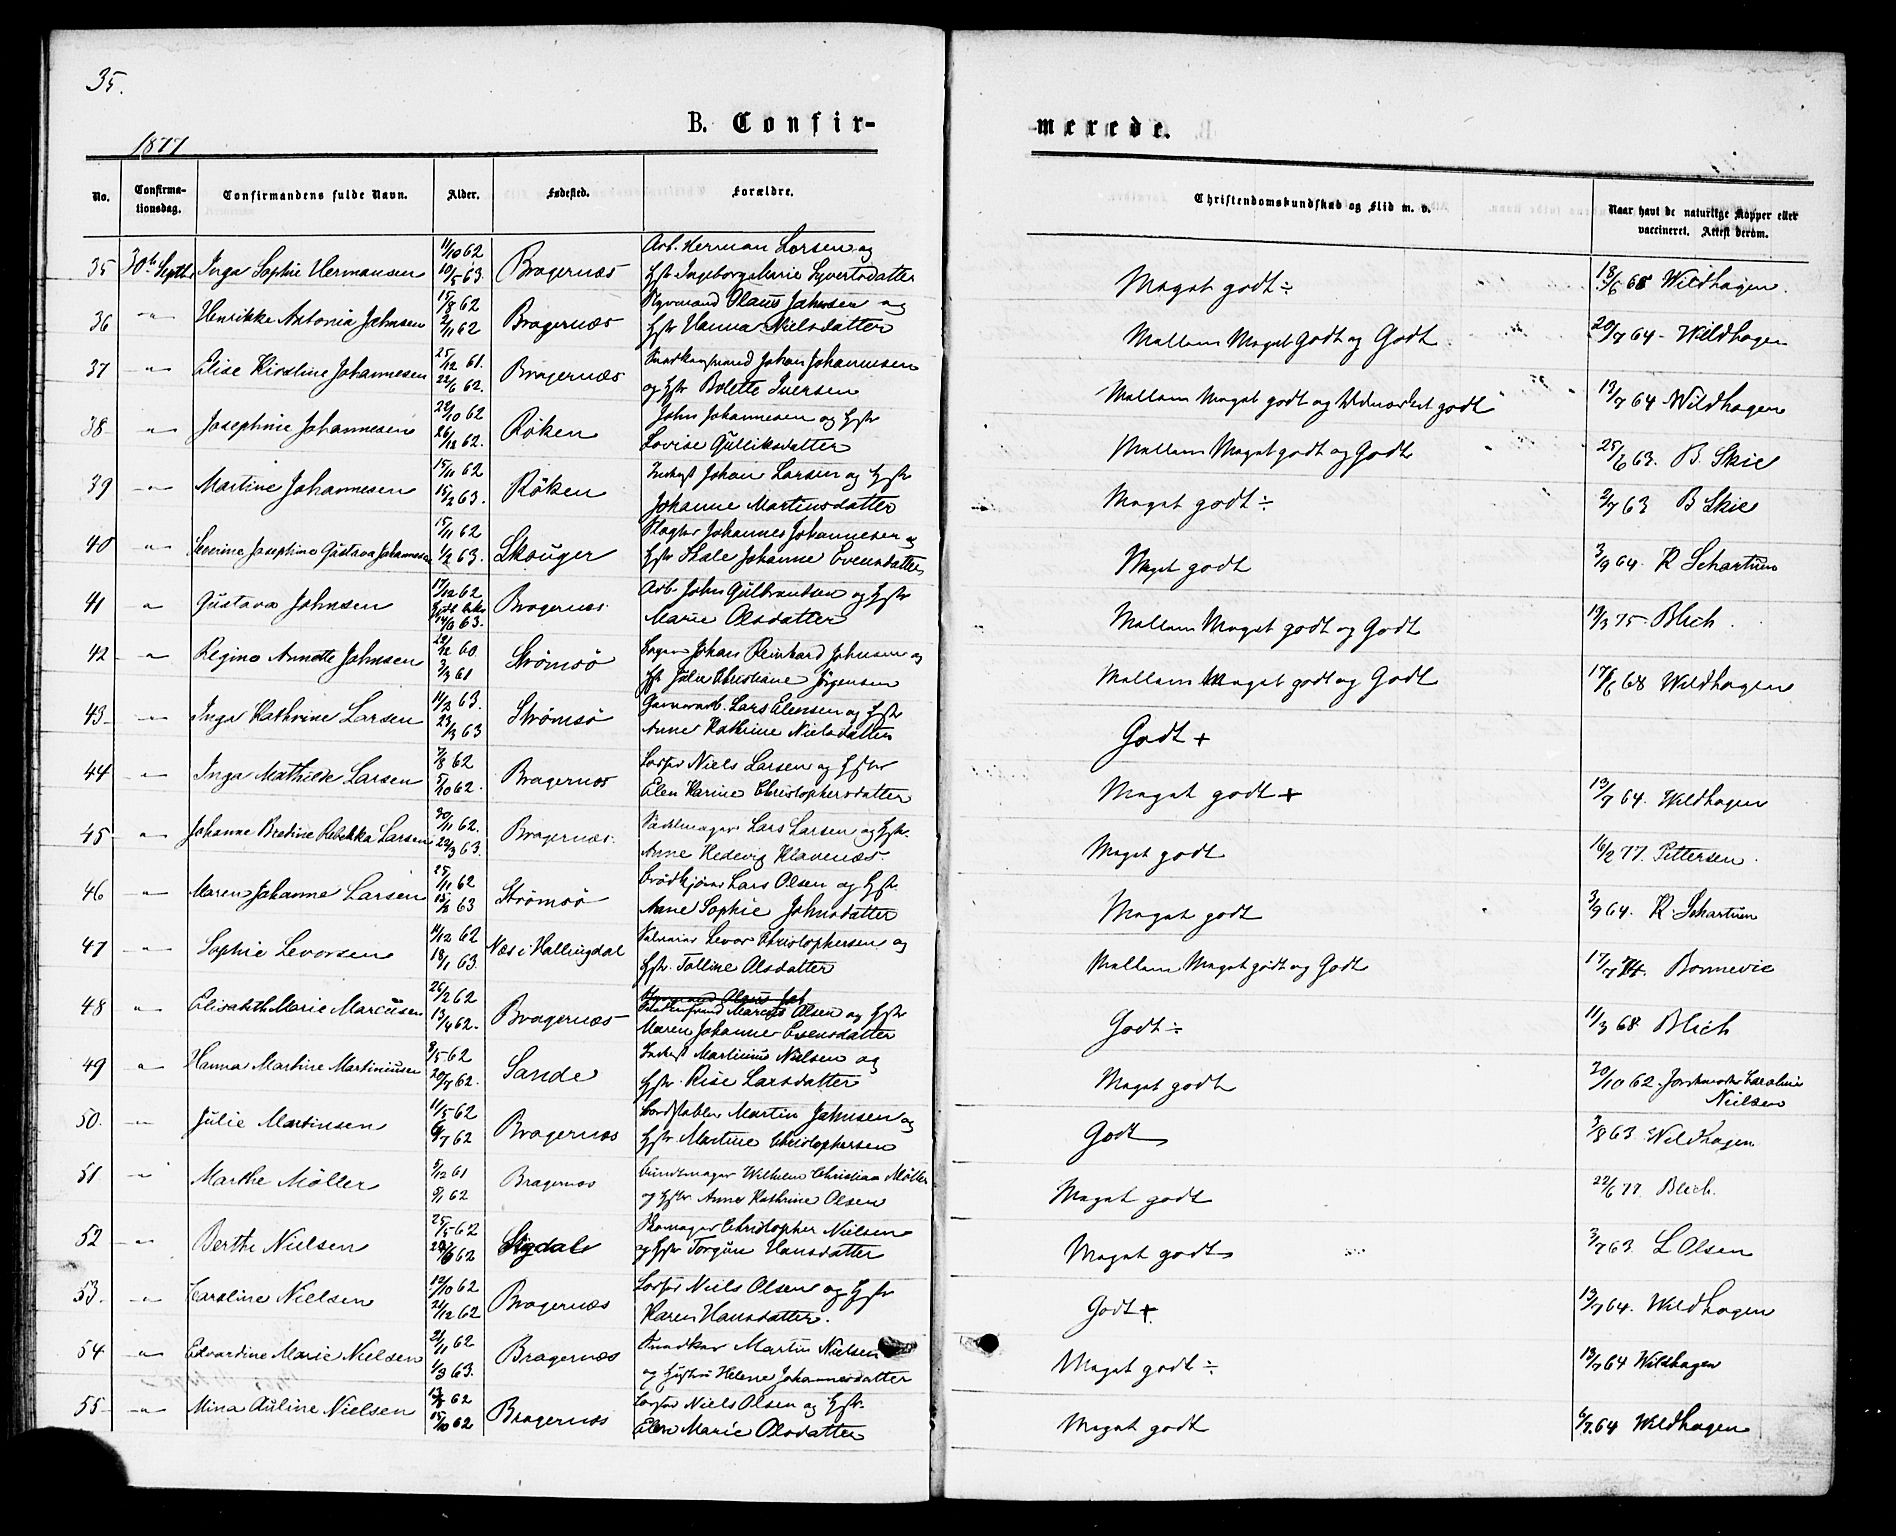 35.
B. Confir-
merede.
1877
No.
Confirma-
tionsdag.
Confirmandens fulde Navn.
Alder.
Fødested.
Forældre.
Christendomskundskab og Flid m. v.
Naar havt de naturlige Kopper eller
vaccineret. Attest derom.
35 30te Septbr Inga Sophie Hermansen 11/10 62 10/5 63 Bragernæs Arb. Herman Larsen og
Hstr Ingeborg Marie Syvertsdatter Meget godt ÷ 18/6 68 Wildhagen.
36 " Henrikke Antonia Johnsen 15/8 62 2/11 62 Bragernæs Olaus Johnsen og
Hstr Hanna Nielsdatter Mellem Meget Godt og Godt 20/7 64 - Wildhagen
37 " Elise Kirstine Johannesen 25/12 61. 22/6 62. Bragernæs Johan Johannesen
og Hstr Bolette Iversen Mellem Meget godt og Udmærket godt 13/7 64 Wildhagen
38 " Josephine Johannesen 29/10 62 26/12 62. Røken John Johannesen og Hstr
Lovise Gulliksdatter Mellem Meget godt og Godt 25/6 63. B. Skie
39 " Martine Johannesen 15/11 62 15/2 63. Røken Inderst Johan Larsen og Hstr
Johanne Martinsdatter Meget godt ÷ 2/7 63 B Skie
40 " Severine Josephine Gustava Johannesen 15/11 62 1/2 63. Skouger Slagter Johannes Johannesen og
Hstr Johanne Evensdatter Meget godt 3/9 64. R Schartum
41 " Gustava Johnsen 17/12 62 63. Bragernæs Arb. John Gulbrandsen og Hstr
Marie Olsdatter Mellem Meget godt og Godt 19/3 75 - Blich.
42 " Regine Annette Johnsen 60 3/3 61 Strømsø Johan Reinhard Johnsen og
Hstr Julie Christiane Jørgensen Mellem Meget godt og Godt 17/6 68 Wildhagen
43 - " Inga Kathrine Larsen 11/2 63. 23/3 63 Strømsø Lars Elensen og Hstr
Anne Kathrine Nielsdatter Godt +
44 " Inga Mathilde Larsen 7/8 62 5/10 62. Bragernæs Niels Larsen og Hstr
Elen Karine Christophersdatter Meget godt + 13/7 64. Wildhagen
45 " Johanne Bredine Rebekka Larsen 30/11 62. 29/3 63. Bragernæs. Sadelmager Lars Larsen og Hstr.
Anne Hedevig Klavenæs Meget godt 16/2 77. Pettersen.
46 " Maren Johanne Larsen 25/11 62 15/3 63 Strømsø Brødkjører Lars Olsen og Hstr
Anne Sophie Johnsdatter Meget godt 3/9 64. R. Schartum
47 " Sophie Levorsen 11/12 62 18/1 63. Næs i Hallingdal Levor Christophersen og
Hstr. Olsdatter Mellem Meget godt og Godt 17/7 74. Bonnevie
48 " Elisabeth Marie Marcusen 26/2 62 13/4 62. Bragernæs Marcus Olsen og Hstr
Maren Johanne Evensdatter Godt ÷ 11/3 68 Blich
49 " Hanna Martine Martiniusen 9/5 62 20/7 62. Sande Inderst Martinius Nielsen og
Hstr. Rise Larsdatter Meget godt 20/10 62. Jordemoder Caroline
Nielsen
50. " Julie Martinsen 11/5 62 6/7 62 Bragernæs Bordstabler Martin Johnsen og
Hstr Martine Christophersen Godt 7/8 63 Wildhagen
51 " Marthe Møller 5/12 61 5/1 62 Bragernæs Bundtmager Wilhelm Christian Møller
og Hstr Anne Kathrine Olsen Meget godt 22/6 77. Blich.
52 " Berthe Nielsen 25/5 62 62 Sigdal Skomager Christopher Nielsen
og Hstr Torgun Hansdatter Meget godt 3/7 63. L Olsen
53. " Caroline Nielsen 12/10 62 21/12 62 Bragernæs Niels Olsen og Hstr
Karen Hansdatter. Godt + 13/7 64. Wildhagen
54 " Edvardine Marie Nielsen 21/11 62 1/3 63. Bragernæs Martin Nielsen
og Hustru Helene Johannesdatter Meget godt ÷ 13/7 64 Wildhagen
55 - " Mina Auline Nielsen 62 15/10 62 Bragernæs Niels Olsen og Hstr.
Elen Marie Olsdatter Meget godt 6/7 64 Wildhagen